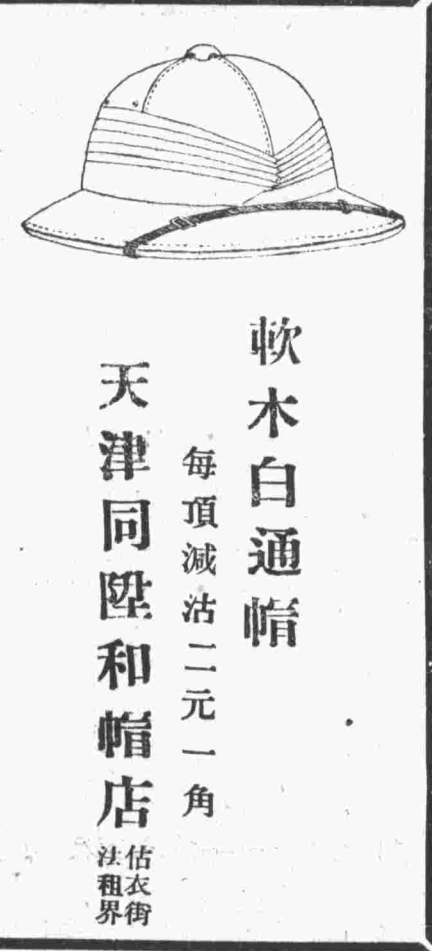 軟木白通帽
每頂減沽二元一角
天津同陞和帽店
估衣街
法租界